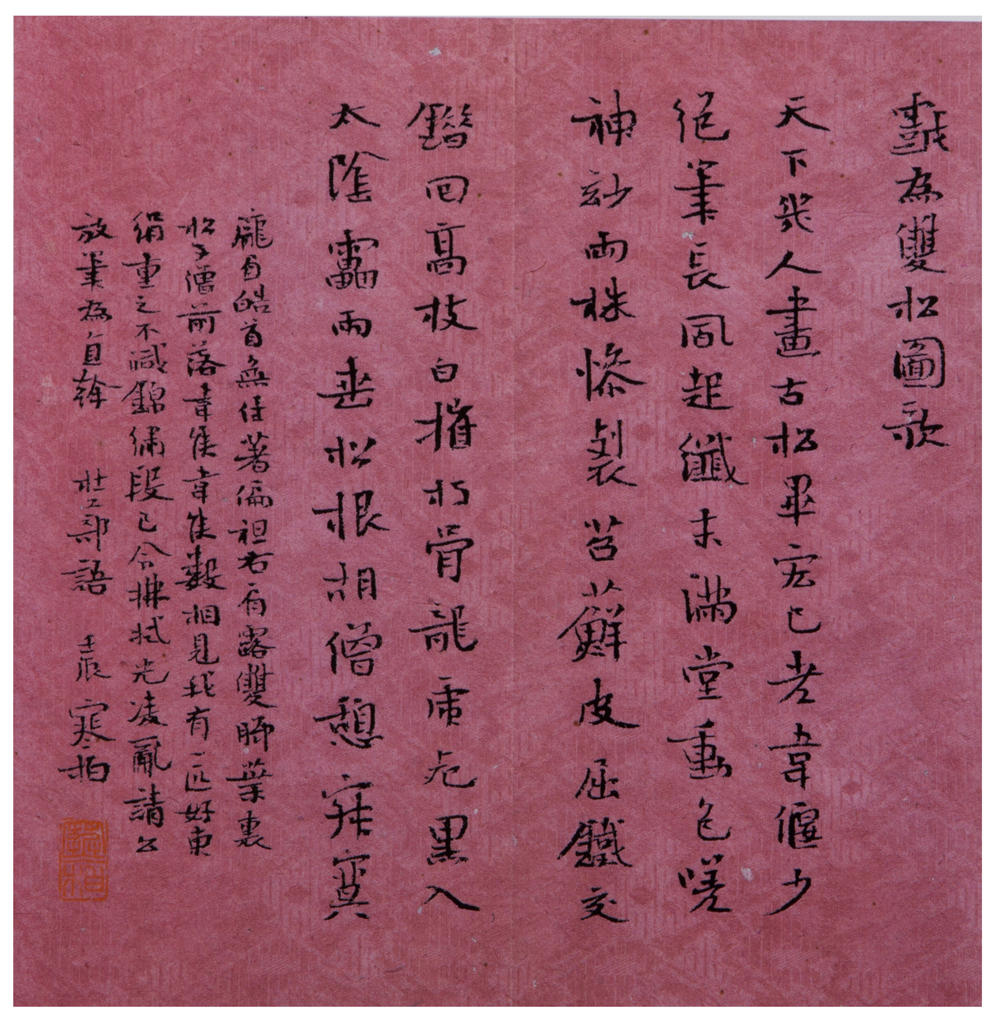 戲為雙松圖歌
天下幾人畫古松畢宏已老韋偃少
絕筆長風起纖末滿堂動色嗟
神妙兩株慘裂苔蘚皮屈鐵交
錯回高枝白摧朽骨龍虎死黑入
太陰雷雨垂松根胡僧憩寂寞
龐眉皓首無住著偏袒右肩露雙腳葉裏
松子僧前落韋侯韋侯數相見我有一匹好東
絹重之不減錦繡段已令拂拭光凌亂請公
放筆為直榦 杜工部語 壬辰 寒柏